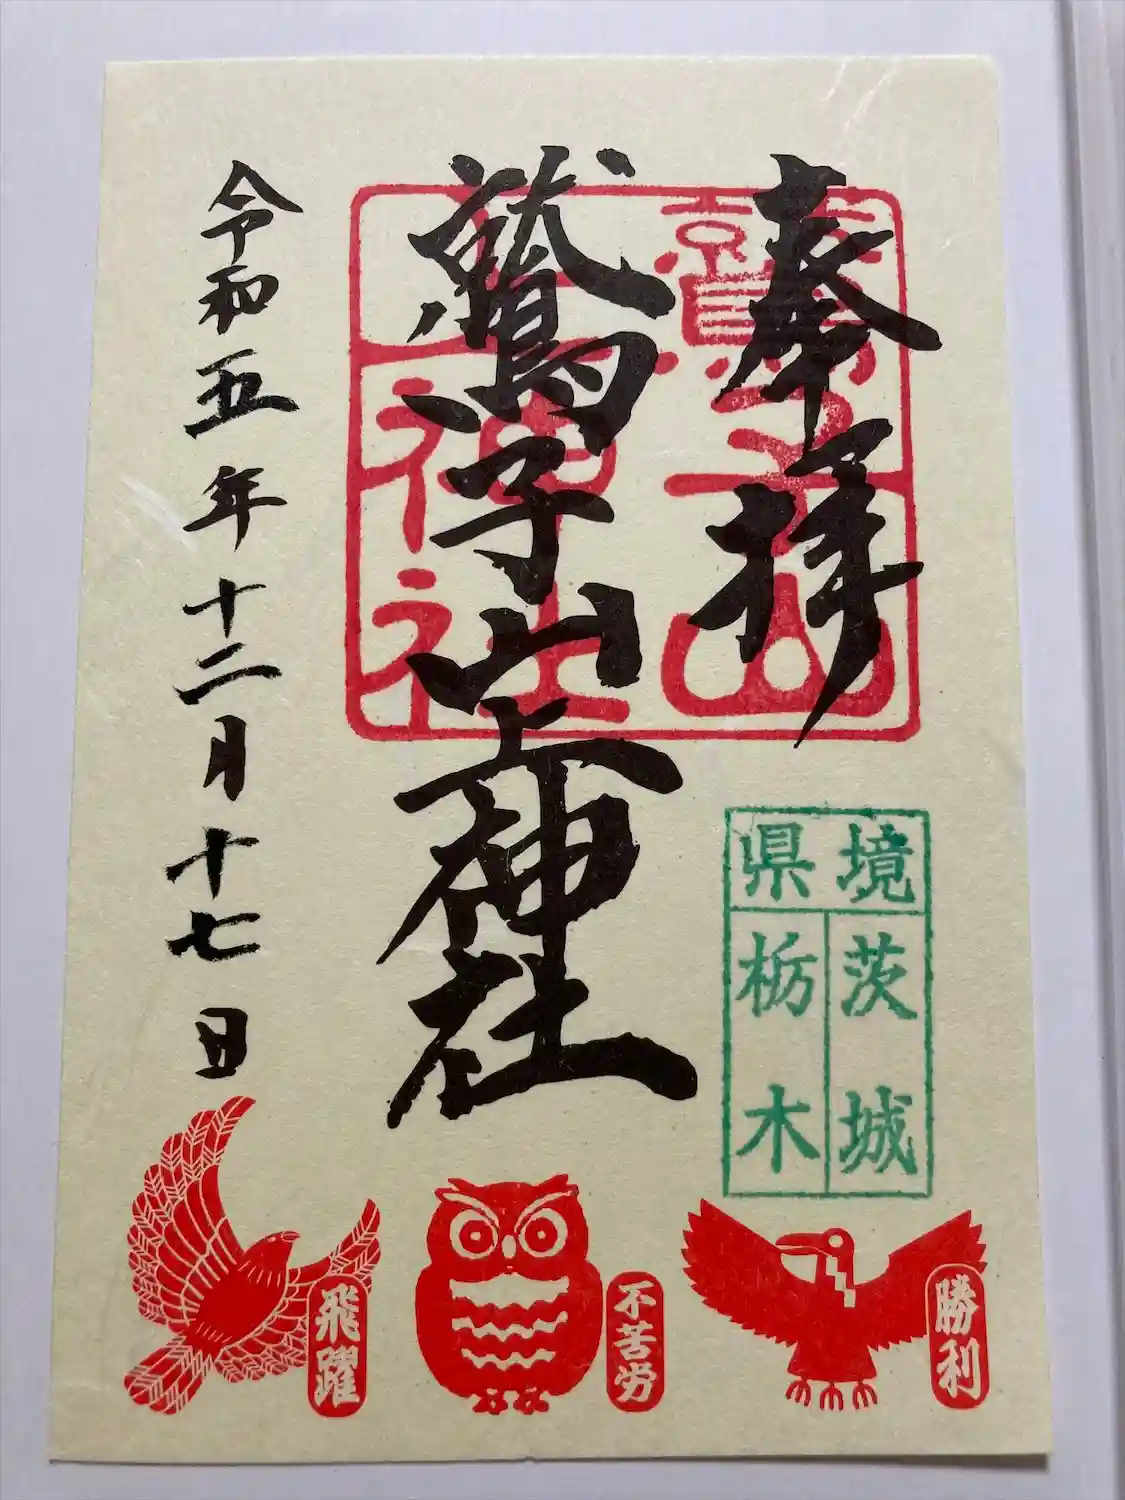 奉拝
鷲子山上神社
令和五年十二月十七日
鷲子山
上神社
県境
茨城
栃木
飛躍
不苦労
勝利